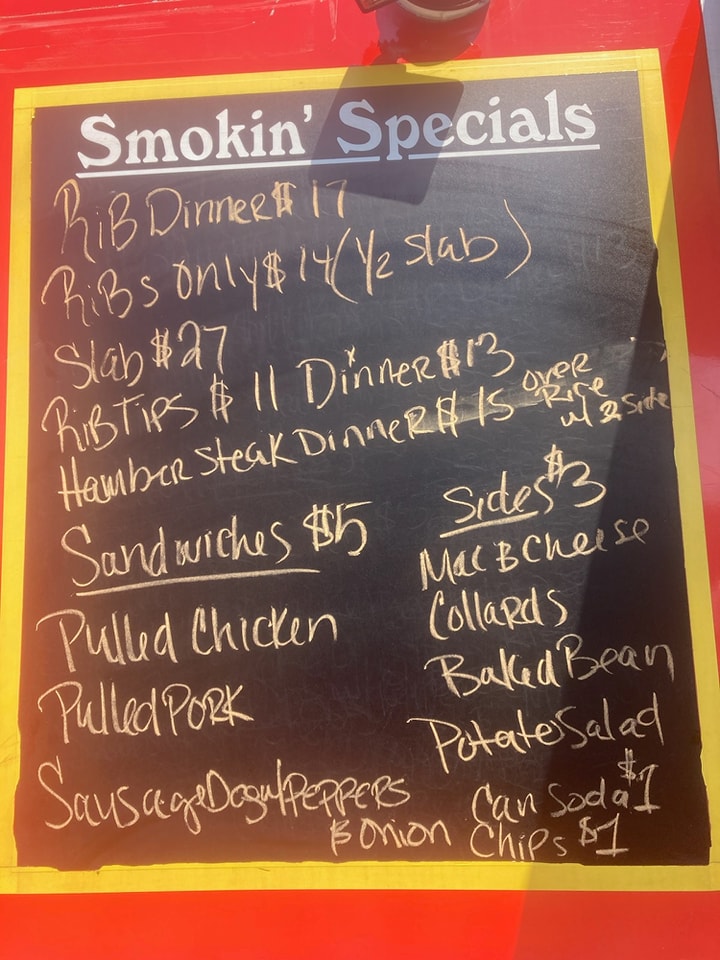 Smokin' Specials
RiB Dinner $17
RiBs only $14 (1/2 slab)
Slab $27
RiB Tips $11 Dinner $13
Hamber steak Dinner $15 over Rice w/ 2 side
Sandwiches $5
Pulled Chicken
Pulled PORK
Sausage Dog w/ PEPPERS
& onion
Sides $3
Mac & Cheese
Collards
Baked Bean
Potato Salad
Can Soda $1
Chips $1